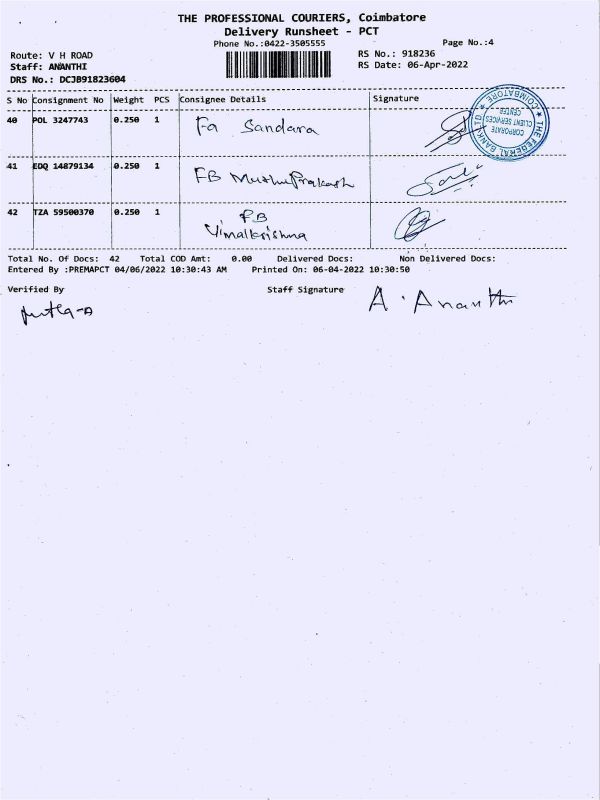 THE PROFESSIONAL COURIERS, Coimbatore
Delivery Runsheet - PCT
Phone No.:0422-3505555
Page No.:4
Route: V H ROAD
RS No.: 918236
Staff: ANANTHI
RS Date: 06-Apr-2022
DRS No.: DCJB91823604
S No Consignment No Weight PCS Consignee Details Signature
40 POL 3247743 0.250 1 Fa Sandara
41 EDQ 14879134 0.250 1 FB MuthuPrakash
42 TZA 59500370 0.250 1 FB
Vimalkrishna
THE FEDERAL BANK LTD
COIMBATORE
CORPORATE
CLIENT SERVICES
CENTER
Total No. Of Docs: 42 Total COD Amt: 0.00 Delivered Docs: Non Delivered Docs:
Entered By :PREMAPCT 04/06/2022 10:30:43 AM Printed On: 06-04-2022 10:30:50
Verified By Staff Signature
A. Ananthi